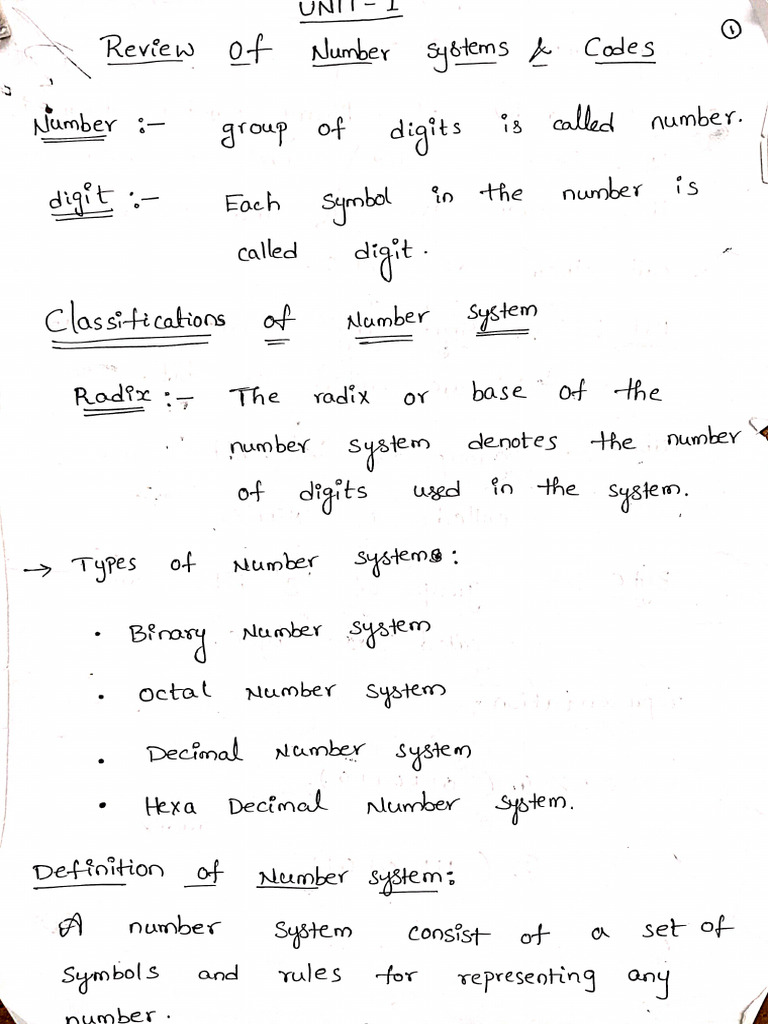 UNIT - I
①
Review Of Number systems & Codes
Number :- group of digits is called number.
digit :- Each symbol in the number is
called digit.
Classifications of Number system
Radix :- The radix or base of the
number system denotes the number
of digits used in the system.
→ Types of Number systems:
• Binary Number system
• Octal Number system
• Decimal Number system
• Hexa Decimal Number system.
Definition of Number system:
A number system consist of a set of
symbols and rules for representing any
number.